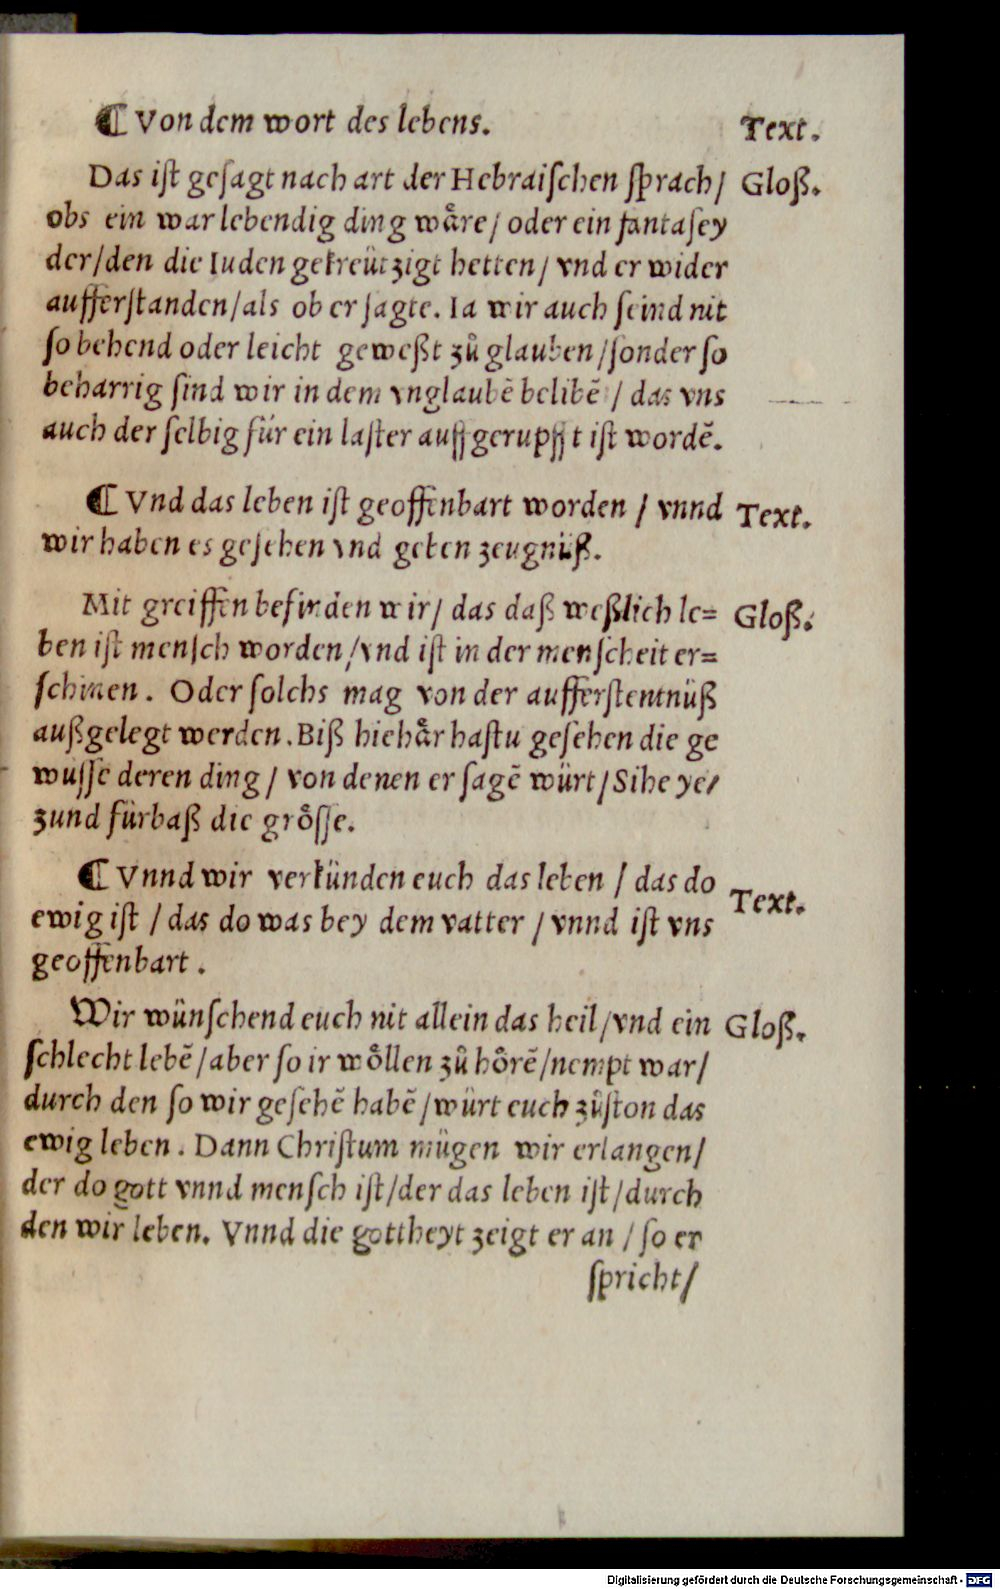 ¶ Von dem wort des lebens. Text.
Das iſt geſagt nach art der Hebraiſchen ſprach/ Gloß.
obs ein war lebendig ding waͤre/ oder ein fantaſey
der/den die Iuden gekreützigt hetten/ vnd er wider
aufferſtanden/als ob er ſagte. Ia wir auch ſeind nit
ſo behend oder leicht geweßt zuͦ glauben/ſonder ſo
beharrig ſind wir in dem vnglaubē belibē/ das vns
auch der ſelbig für ein laſter auffgerupfft iſt wordē.
¶ Vnd das leben iſt geoffenbart worden / vnnd Text.
wir haben es geſehen vnd geben zeugnüß.
Mit greiffen befinden wir/ das daß weßlich le= Gloß.
ben iſt menſch worden/vnd iſt in der menſcheit er=
ſchinen. Oder ſolchs mag von der aufferſtentnüß
außgelegt werden. Biß hiehaͤr haſtu geſehen die ge
wüſſe deren ding/ von denen er ſagē würt/Sihe ye/
zund fürbaß die groͤſſe.
¶ Vnnd wir verkünden euch das leben / das do Text.
ewig iſt / das do was bey dem vatter / vnnd iſt vns
geoffenbart.
Wir wünſchend euch nit allein das heil/vnd ein Gloß.
ſchlecht lebē/aber ſo ir woͤllen zuͦ hoͤrē/nempt war/
durch den ſo wir geſehē habē/würt euch zuͦſton das
ewig leben. Dann Chriſtum mügen wir erlangen/
der do gott vnnd menſch iſt/der das leben iſt/durch
den wir leben. Vnnd die gottheyt zeigt er an / ſo er
ſpricht/
Digitalisierung gefördert durch die Deutsche Forschungsgemeinschaft - DFG